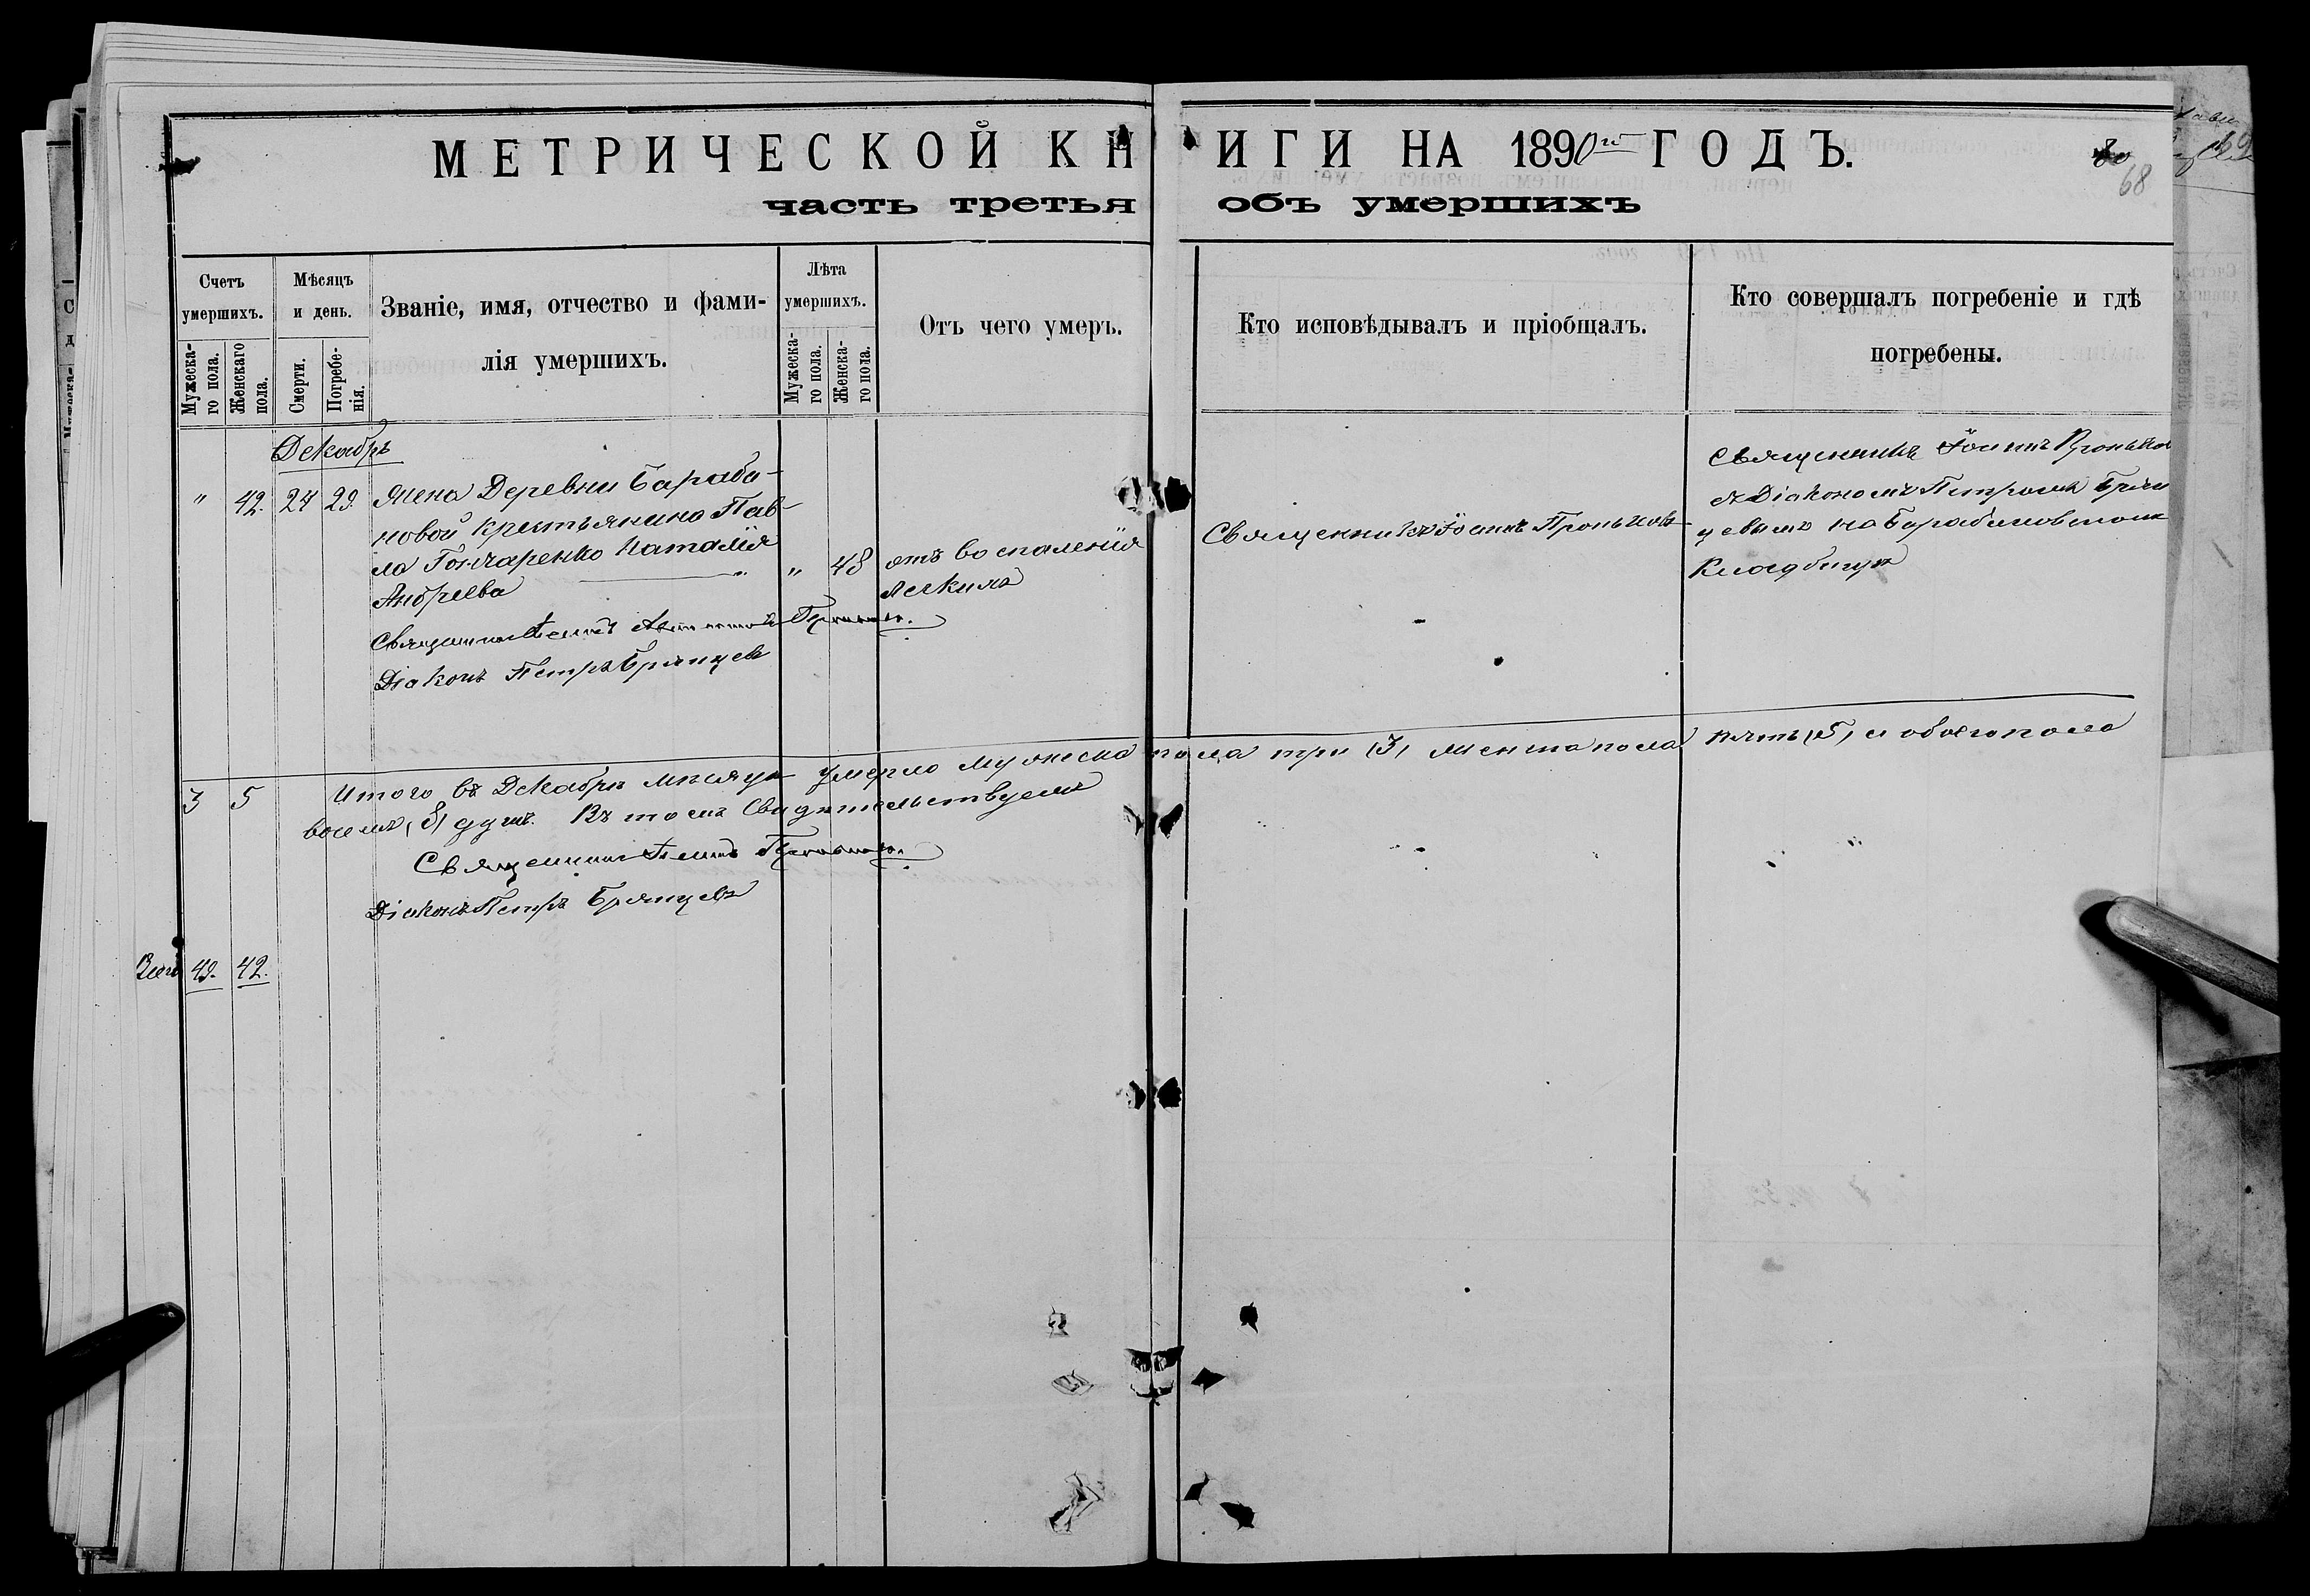 МЕТРИЧЕСКОЙ КНИГИ НА 1890й ГОДЪ.
68
часть третья объ умершихъ
Счетъ умершихъ.
Мужескаго пола.
Женскаго пола.
Мѣсяцъ и день.
Смерти.
Погребенія.
Званіе, имя, отчество и фамилія умершихъ.
Лѣта умершихъ.
Мужескаго пола.
Женскаго пола.
Отъ чего умеръ.
Кто исповѣдывалъ и пріобщалъ.
Кто совершалъ погребеніе и гдѣ погребены.
Декабрь
" 42. 27 29.
Жена Деревни Бараба-
новой крестьянина Пав-
ла Гончаренко Наталія
Андреева
" 48
отъ воспаленія
легкихъ
Священникъ Іоаннъ
Священникъ Іоаннъ
съ Діакономъ Петромъ Брян
цевымъ на Барабановскомъ
Кладбищѣ
Священникъ
Діаконъ Петръ Брянцевъ
3 5
Итого въ Декабрѣ мѣсяцѣ умерло мужеска пола три (3) женска пола пять (5) и обоего пола
восемь (8) душъ. Въ томъ Свидѣтельствуемъ
Священникъ
Діаконъ Петръ Брянцевъ
Всего 49. 42.